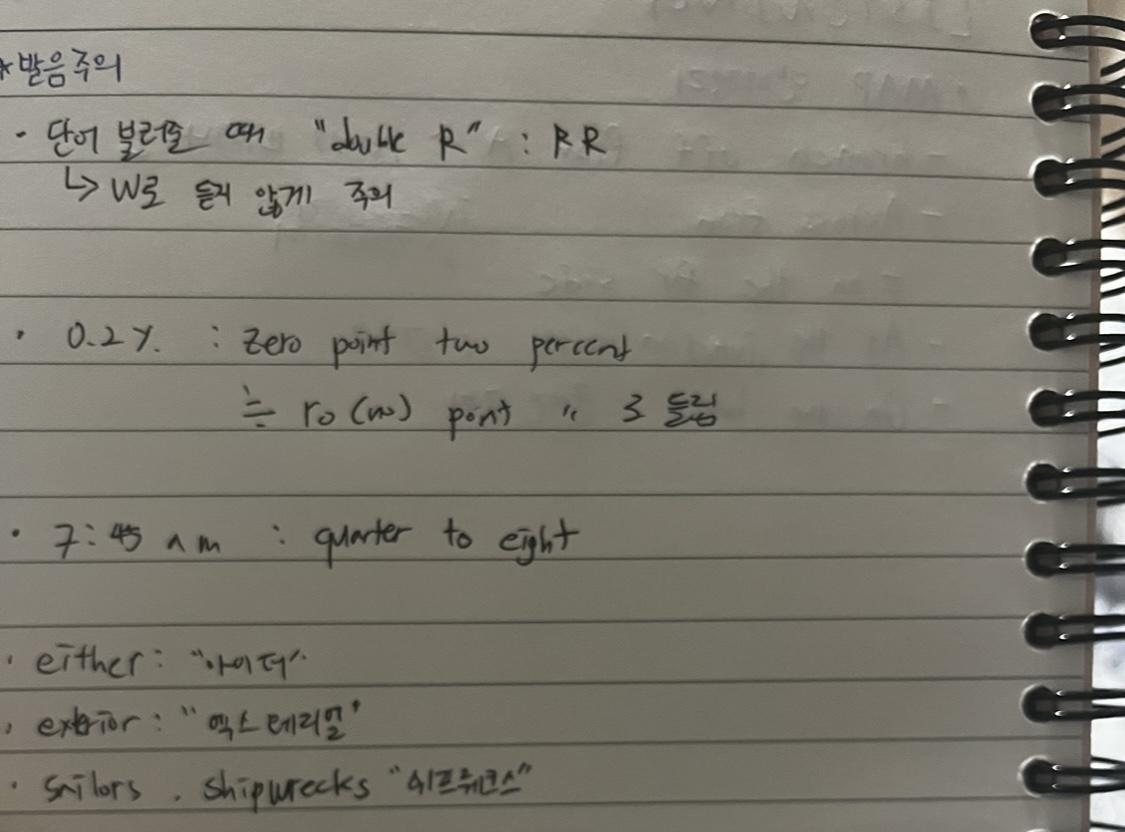 *발음주의
· 단어 불러줄 때 "double R" : RR
↳ W로 듣지 않게 주의
· 0.2% : Zero point two percent
≒ ro (no) point " 로 들림
· 7:45 am : quarter to eight
· either : "아이더"
· exterior : "엑스테리얼"
· sailors, shipwrecks "쉬프뤠크스"